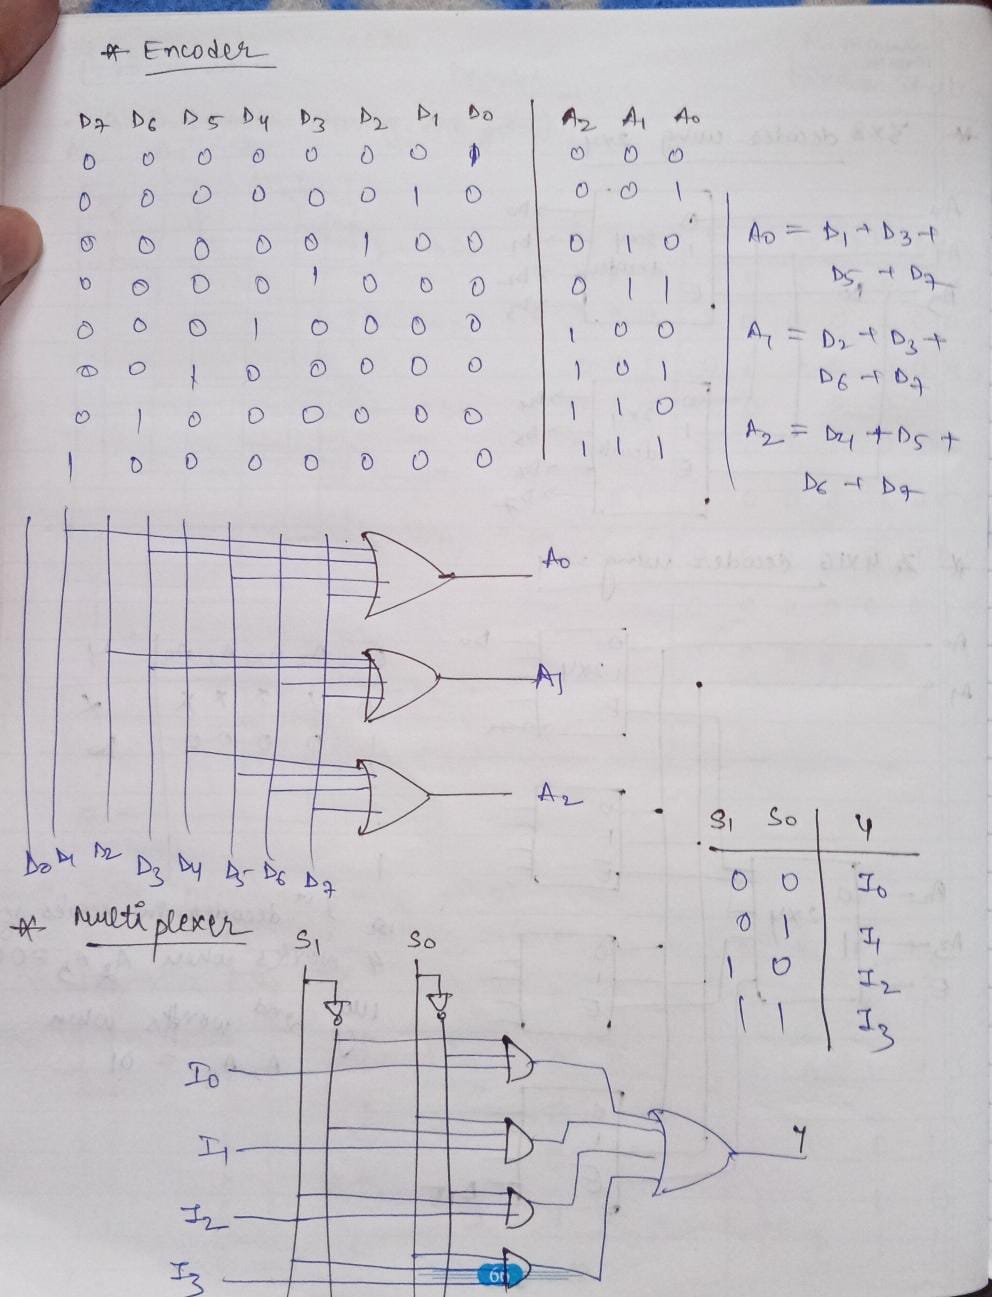 * Encoder
D7 D6 D5 D4 D3 D2 D1 D0 A2 A1 A0
0 0 0 0 0 0 0 1 0 0 0
0 0 0 0 0 0 1 0 0 0 1
0 0 0 0 0 1 0 0 0 1 0
0 0 0 0 1 0 0 0 0 1 1
0 0 0 1 0 0 0 0 1 0 0
0 0 1 0 0 0 0 0 1 0 1
0 1 0 0 0 0 0 0 1 1 0
1 0 0 0 0 0 0 0 1 1 1
A0 = D1 + D3 +
D5 + D7
A1 = D2 + D3 +
D6 + D7
A2 = D4 + D5 +
D6 + D7
A0
A1
A2
D0 D1 D2 D3 D4 D5 D6 D7
* Multiplexer
S1 S0
I0
I1
I2
I3
Y
S1 S0 Y
0 0 I0
0 1 I1
1 0 I2
1 1 I3
60